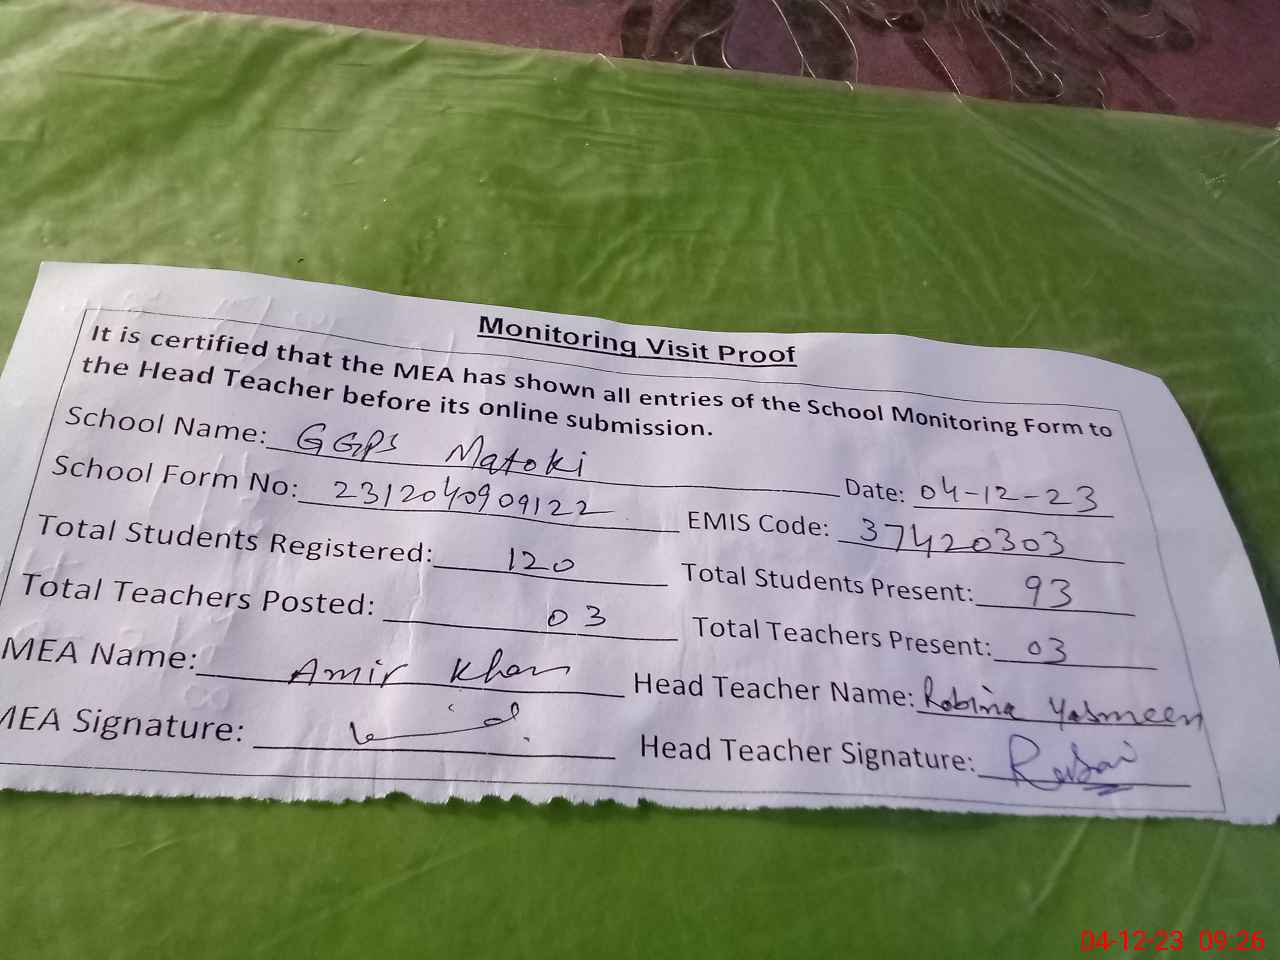 Monitoring Visit Proof
It is certified that the MEA has shown all entries of the School Monitoring Form to
the Head Teacher before its online submission.
School Name: GGPS Matoki Date: 04-12-23
School Form No: 2312040909122 EMIS Code: 37420303
Total Students Registered: 120 Total Students Present: 93
Total Teachers Posted: 03 Total Teachers Present: 03
MEA Name: Amir Khan Head Teacher Name: Robina Yasmeen
MEA Signature: Head Teacher Signature:
04-12-23 09:26